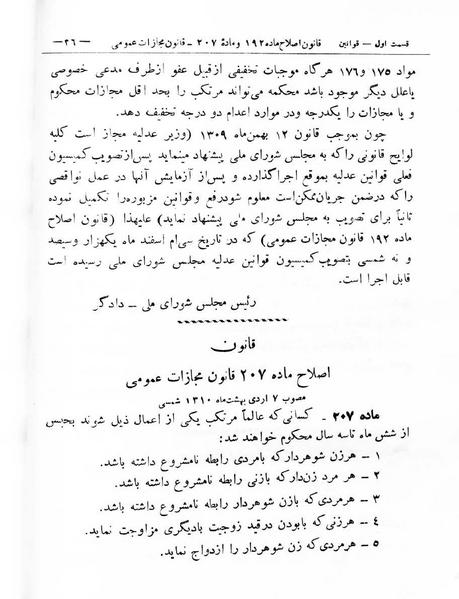 قسمت اول — قوانین قانون اصلاح ماده ۱۹۲ و مادهٔ ۲۰۷ - قانون مجازات عمومی —۲۶—
مواد ۱۷۵ و ۱۷۶ هرگاه موجبات تخفیفی از قبیل عفو از طرف مدعی خصوصی
یا علل دیگر موجود باشد محکمه می‌تواند مرتکب را بحد اقل مجازات محکوم
و یا مجازات را یکدرجه و در موارد اعدام دو درجه تخفیف دهد.
چون بموجب قانون ۱۲ بهمن‌ماه ۱۳۰۹ (وزیر عدلیه مجاز است کلیه
لوایح قانونی را که به مجلس شورای ملی پیشنهاد مینماید پس از تصویب کمیسیون
فعلی قوانین عدلیه بموقع اجرا گذارده و پس از آزمایش آنها در عمل نواقصی
را که در ضمن جریان ممکن است معلوم شود رفع و قوانین مزبوره را تکمیل نموده
ثانیاً برای تصویب به مجلس شورای ملی پیشنهاد نماید) علیهذا (قانون اصلاح
ماده ۱۹۲ قانون مجازات عمومی) که در تاریخ سی‌ام اسفند ماه یکهزار و سیصد
و نه شمسی بتصویب کمیسیون قوانین عدلیه مجلس شورای ملی رسیده است
قابل اجرا است.
رئیس مجلس شورای ملی — دادگر
قانون
اصلاح ماده ۲۰۷ قانون مجازات عمومی
مصوب ۷ اردی بهشت‌ماه ۱۳۱۰ شمسی
ماده ۲۰۷ - کسانی که عالماً مرتکب یکی از اعمال ذیل شوند بحبس
از شش ماه تا سه سال محکوم خواهند شد:
۱ — هر زن شوهردار که با مردی رابطه نامشروع داشته باشد.
۲ — هر مرد زن‌دار که با زنی رابطه نامشروع داشته باشد.
۳ — هر مردی که با زن شوهردار رابطه نامشروع داشته باشد.
٤ — هر زنی که با بودن در قید زوجیت با دیگری مزاوجت نماید.
۵ — هر مردی که زن شوهردار را ازدواج نماید.